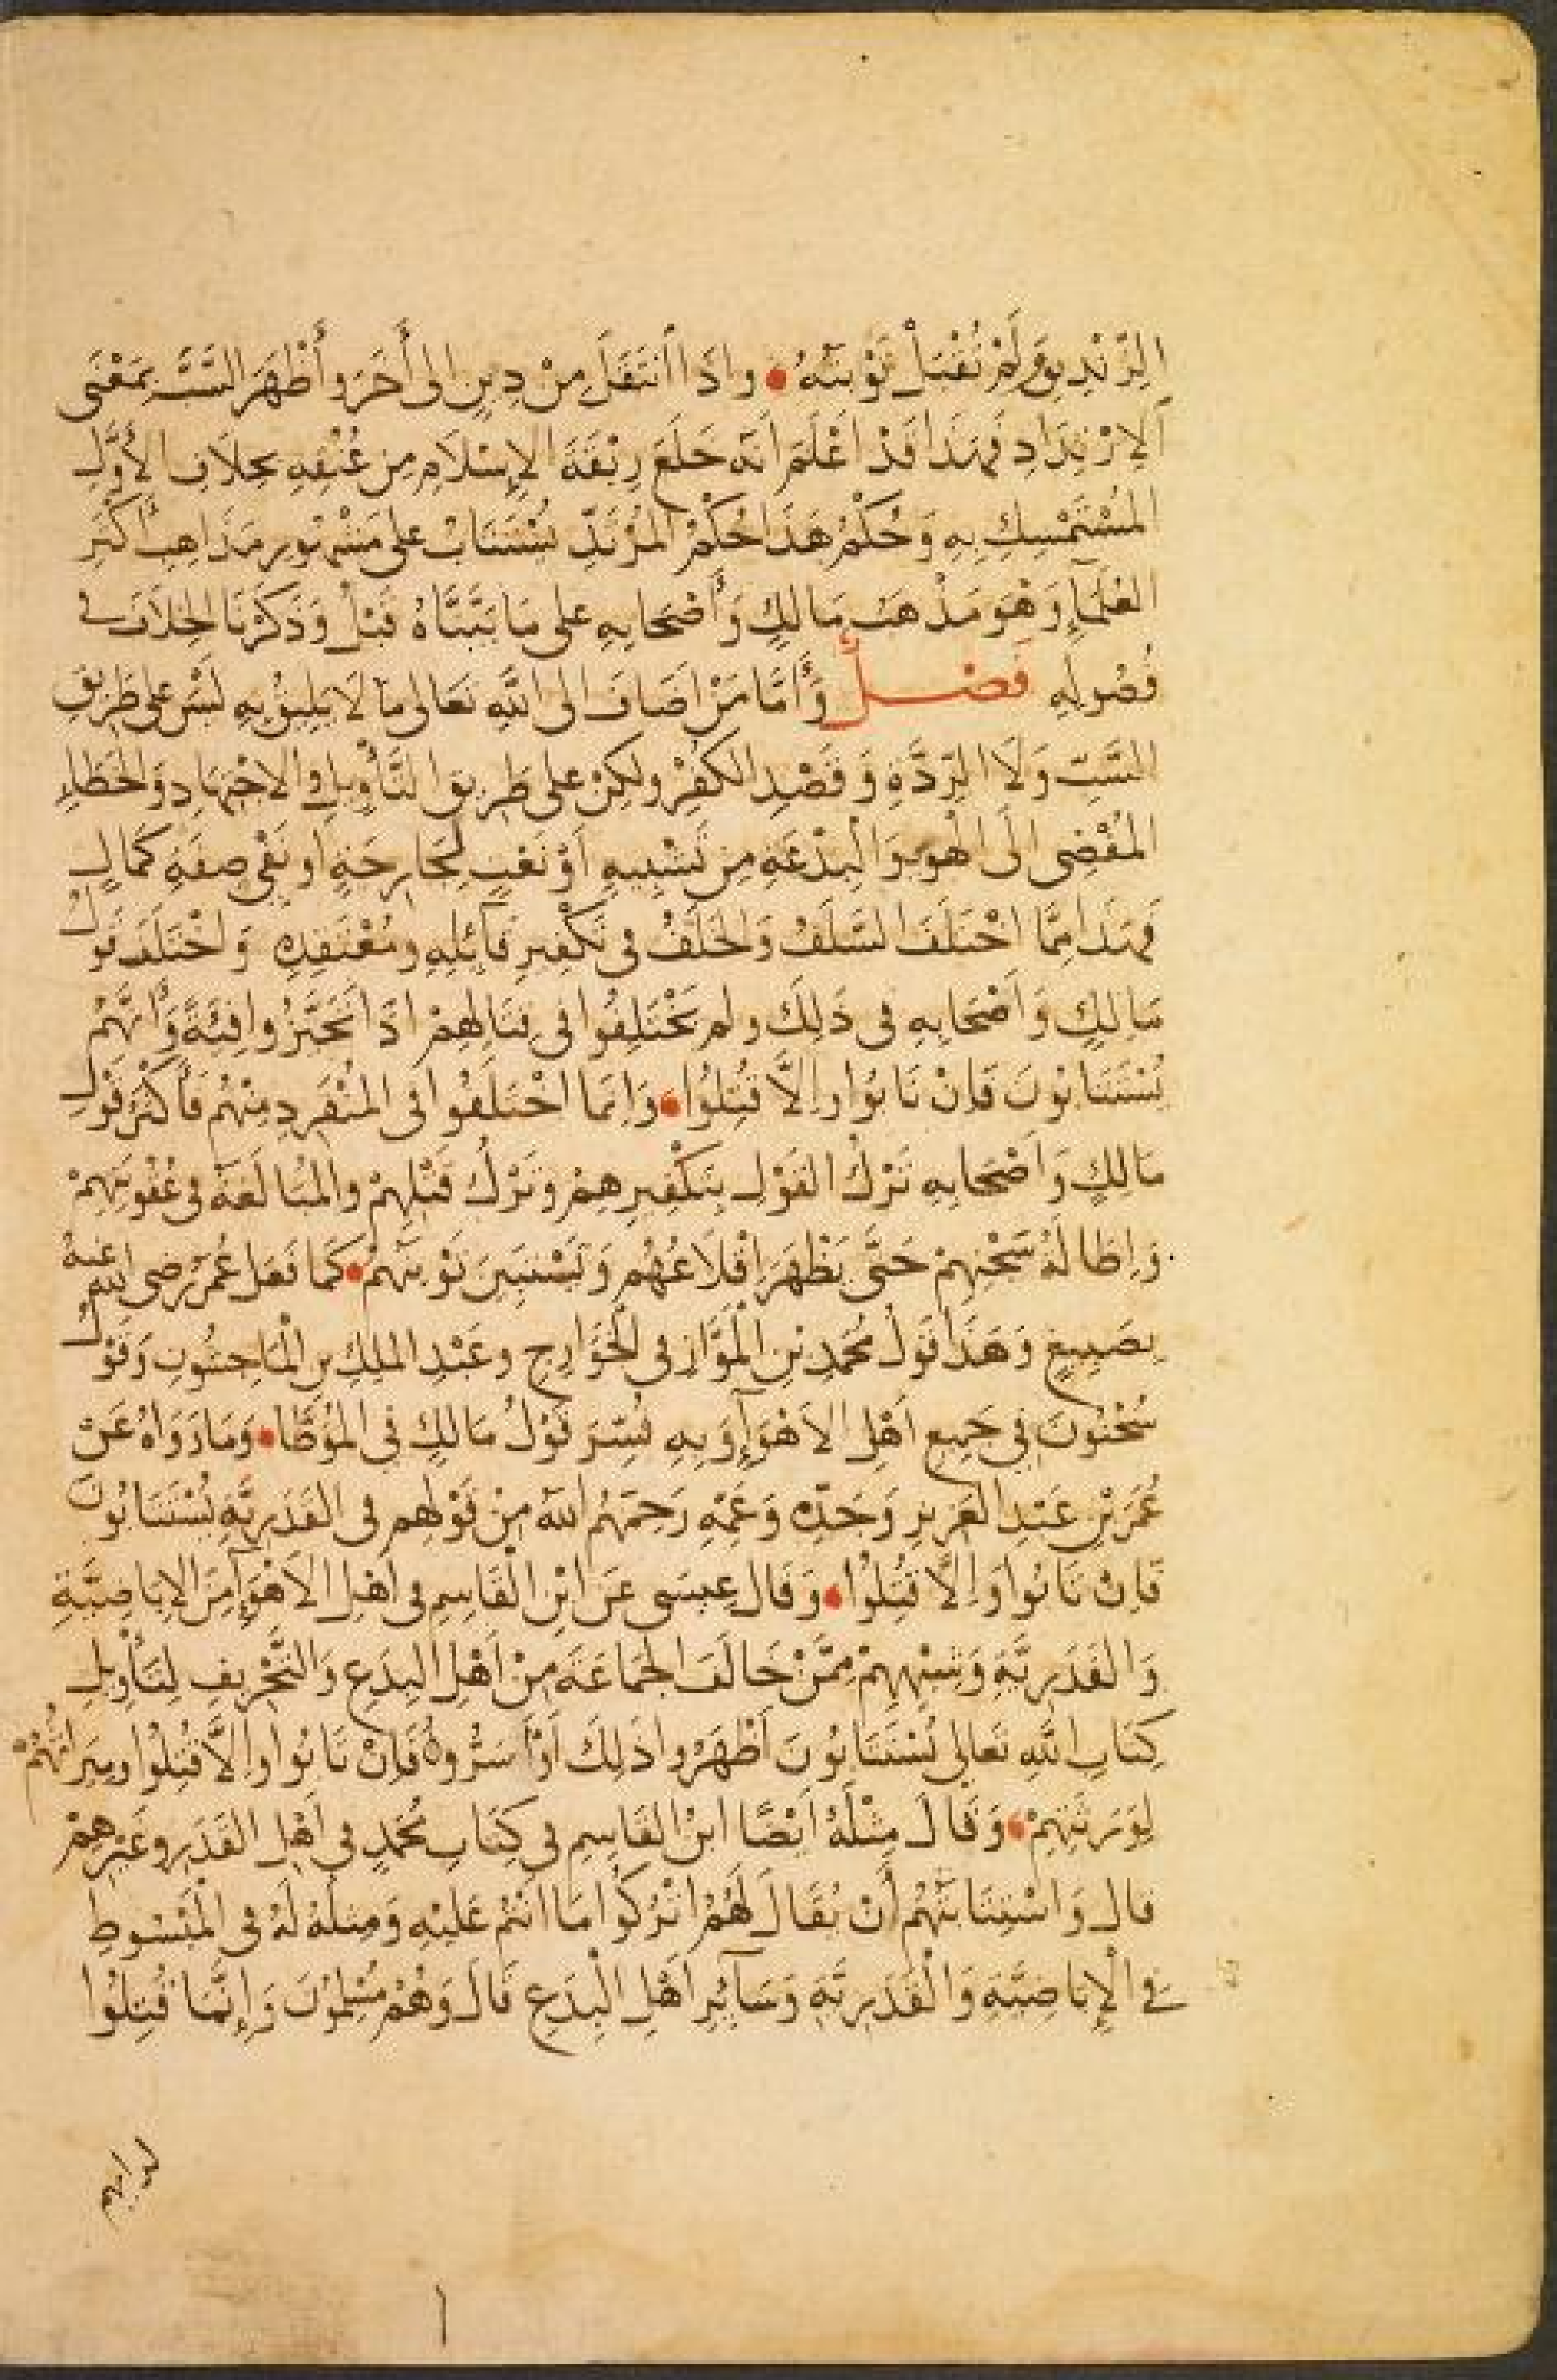 الزِّنْدِيقِ وَلَمْ تُقْبَلْ تَوْبَتُهُ • وإذَا انْتَقَلَ مِنْ دِينٍ إلى أَخَرَ وأَظْهَرَ السَّبَّ بِمَعْنَى
الِارْتِدَادِ فَهَذَا قَدْ أَعْلَمَ أنّه خَلَعَ رِبْقَةَ الإِسْلَامِ مِن عُنُقِهِ بخِلَافِ الأَوَّلِ
المُسْتَمْسِكِ بِهِ وَحُكْمُ هَذَا حُكْمُ المُرْتَدِّ يُسْتَتَابُ على مَشْهُورِ مَذَاهِبِ أَكْثَرِ
العُلَمَاءِ وَهْوَ مَذْهَبُ مَالِكٍ وَأَصْحَابِهِ على مَا بَيَّنَّاهُ قَبْلُ وَذَكَرْنَا الخِلَافَ في
فُصُولِهِ فَصْلٌ وَأَمَّا مَنْ اضَافَ الى اللَّهِ تَعَالى مَا لَا يَلِيقُ بِهِ لَيْسَ على طَرِيقِ
السَّبِّ وَلَا الرِّدَّةِ وَقَصْدِ الكُفْرِ ولكِنْ على طَرِيقِ التَّأْوِيلِ والاجْتِهَادِ وَالخَطَاءِ
المُفْضِى الَى الهَوى وَالْبِدْعَةِ مِن تَشْبِيهٍ أَوْ نَعْتٍ بجَارِحَةٍ او نَفْىِ صِفَةِ كَمَالٍ
فَهَذَا مِمَّا اخْتَلَفَ السَّلَفُ وَالخَلَفُ فى تَكْفِيرِ قَائِلِهِ ومُعْتَقِدِهِ وَاخْتَلَفَ قَوْلُ
مَالِكٍ وَأَصْحَابِهِ فى ذَلِكَ ولم يَخْتَلِفُوا فى قِتَالِهِمْ اذَا تَحَيَّزُوا فِئَةً وَأَنَّهُمْ
يُسْتَتَابُونَ فَاِنْ تَابُوا واِلَّا قُتِلُوا • وَاِنَمَا اخْتَلَفُوا فى المُنْفَرِدِ مِنْهُمْ فَأَكْثَرُ قَوْلِ
مَالِكٍ وَأَصْحَابِهِ تَرْكُ القَوْلِ بِتَكْفِيرِهِمْ وَتَرْكُ قَتْلِهِمْ والمُبَالَغَةُ فى عُقُوبَتِهِمْ
وَاِطَالَةُ سَجْنِهِمْ حَتَّى يَظْهَرَ اقْلَاعُهُم وَتَسْتَبِينَ تَوْبَتُهُمْ • كَمَا فَعَلَ عُمَرُ رَضِى الله عَنْهُ
بِصَبِيغٍ وَهَذَا قَوْلُ مُحَمَّدِ بْنِ الْمَوَّازِ فى الخَوَارِجِ وعَبْدِ الملِكِ بنِ الْمَاجِشُونِ وَقَوْلُ
سُحْنُونَ فِي جَمِيعِ أَهْلِ الاَهْوَآءِ وَبِهِ فُسِّرَ قَوْلُ مَالِكٍ فِى المُوَطَّا • وَمَا رَوَاهُ عَنْ
عُمَرَ بْنِ عَبْدِ العَزِيزِ وَجَدِّهِ وَعَمِّهِ رَحِمَهُم اللّه مِنْ قَوْلِهِم فى القَدَرِيَّةِ يُسْتَتَابُونَ
فَاِنْ تَابُوا وَاِلَّا قُتِلُوا • وَقَالَ عِيسَى عَنِ ابْنِ الْقَاسِمِ فى اَهْلِ الاَهْوَآءِ مِنَ الإِبَاضِيَّةِ
وَالقَدَرِيَّةِ وَشِبْهِهِمْ مِمَّنْ خَالَفَ الجَمَاعَةَ مِنْ أَهْلِ البِدَعِ وَالتَّحْرِيفِ لِتَأْوِيلِ
كِتَابِ اللَّهِ تَعَالى يُسْتَتَابُونَ أَظْهَرُوا ذَلِكَ أَوْ أَسَرُّوهُ فَاِنْ تَابُوا واِلَّا قُتِلُوا ومِيرَاثُهُمْ
لِوَرَثَتِهِمْ • وَقَالَ مِثْلَهُ اَيْضًا ابْنُ القَاسِمِ فِي كِتَابِ مُحَمَّدٍ فِي أَهْلِ القَدَرِ وغَيْرِهِمْ
قال وَاسْتِتَابَتُهُم أَنْ يُقَالَ لَهُمُ اتْرُكُوا مَا انْتُم عَلَيْهِ وَمِثلُهُ لَهُ فى المَبْسُوطِ
في الْإِبَاضِيَّةِ وَالْقَدَرِيَّةِ وَسَآئِرِ أَهْلِ الْبِدَعِ قَالَ وَهُمْ مُسْلِمُونَ وَإِنَّمَا قُتِلُوا